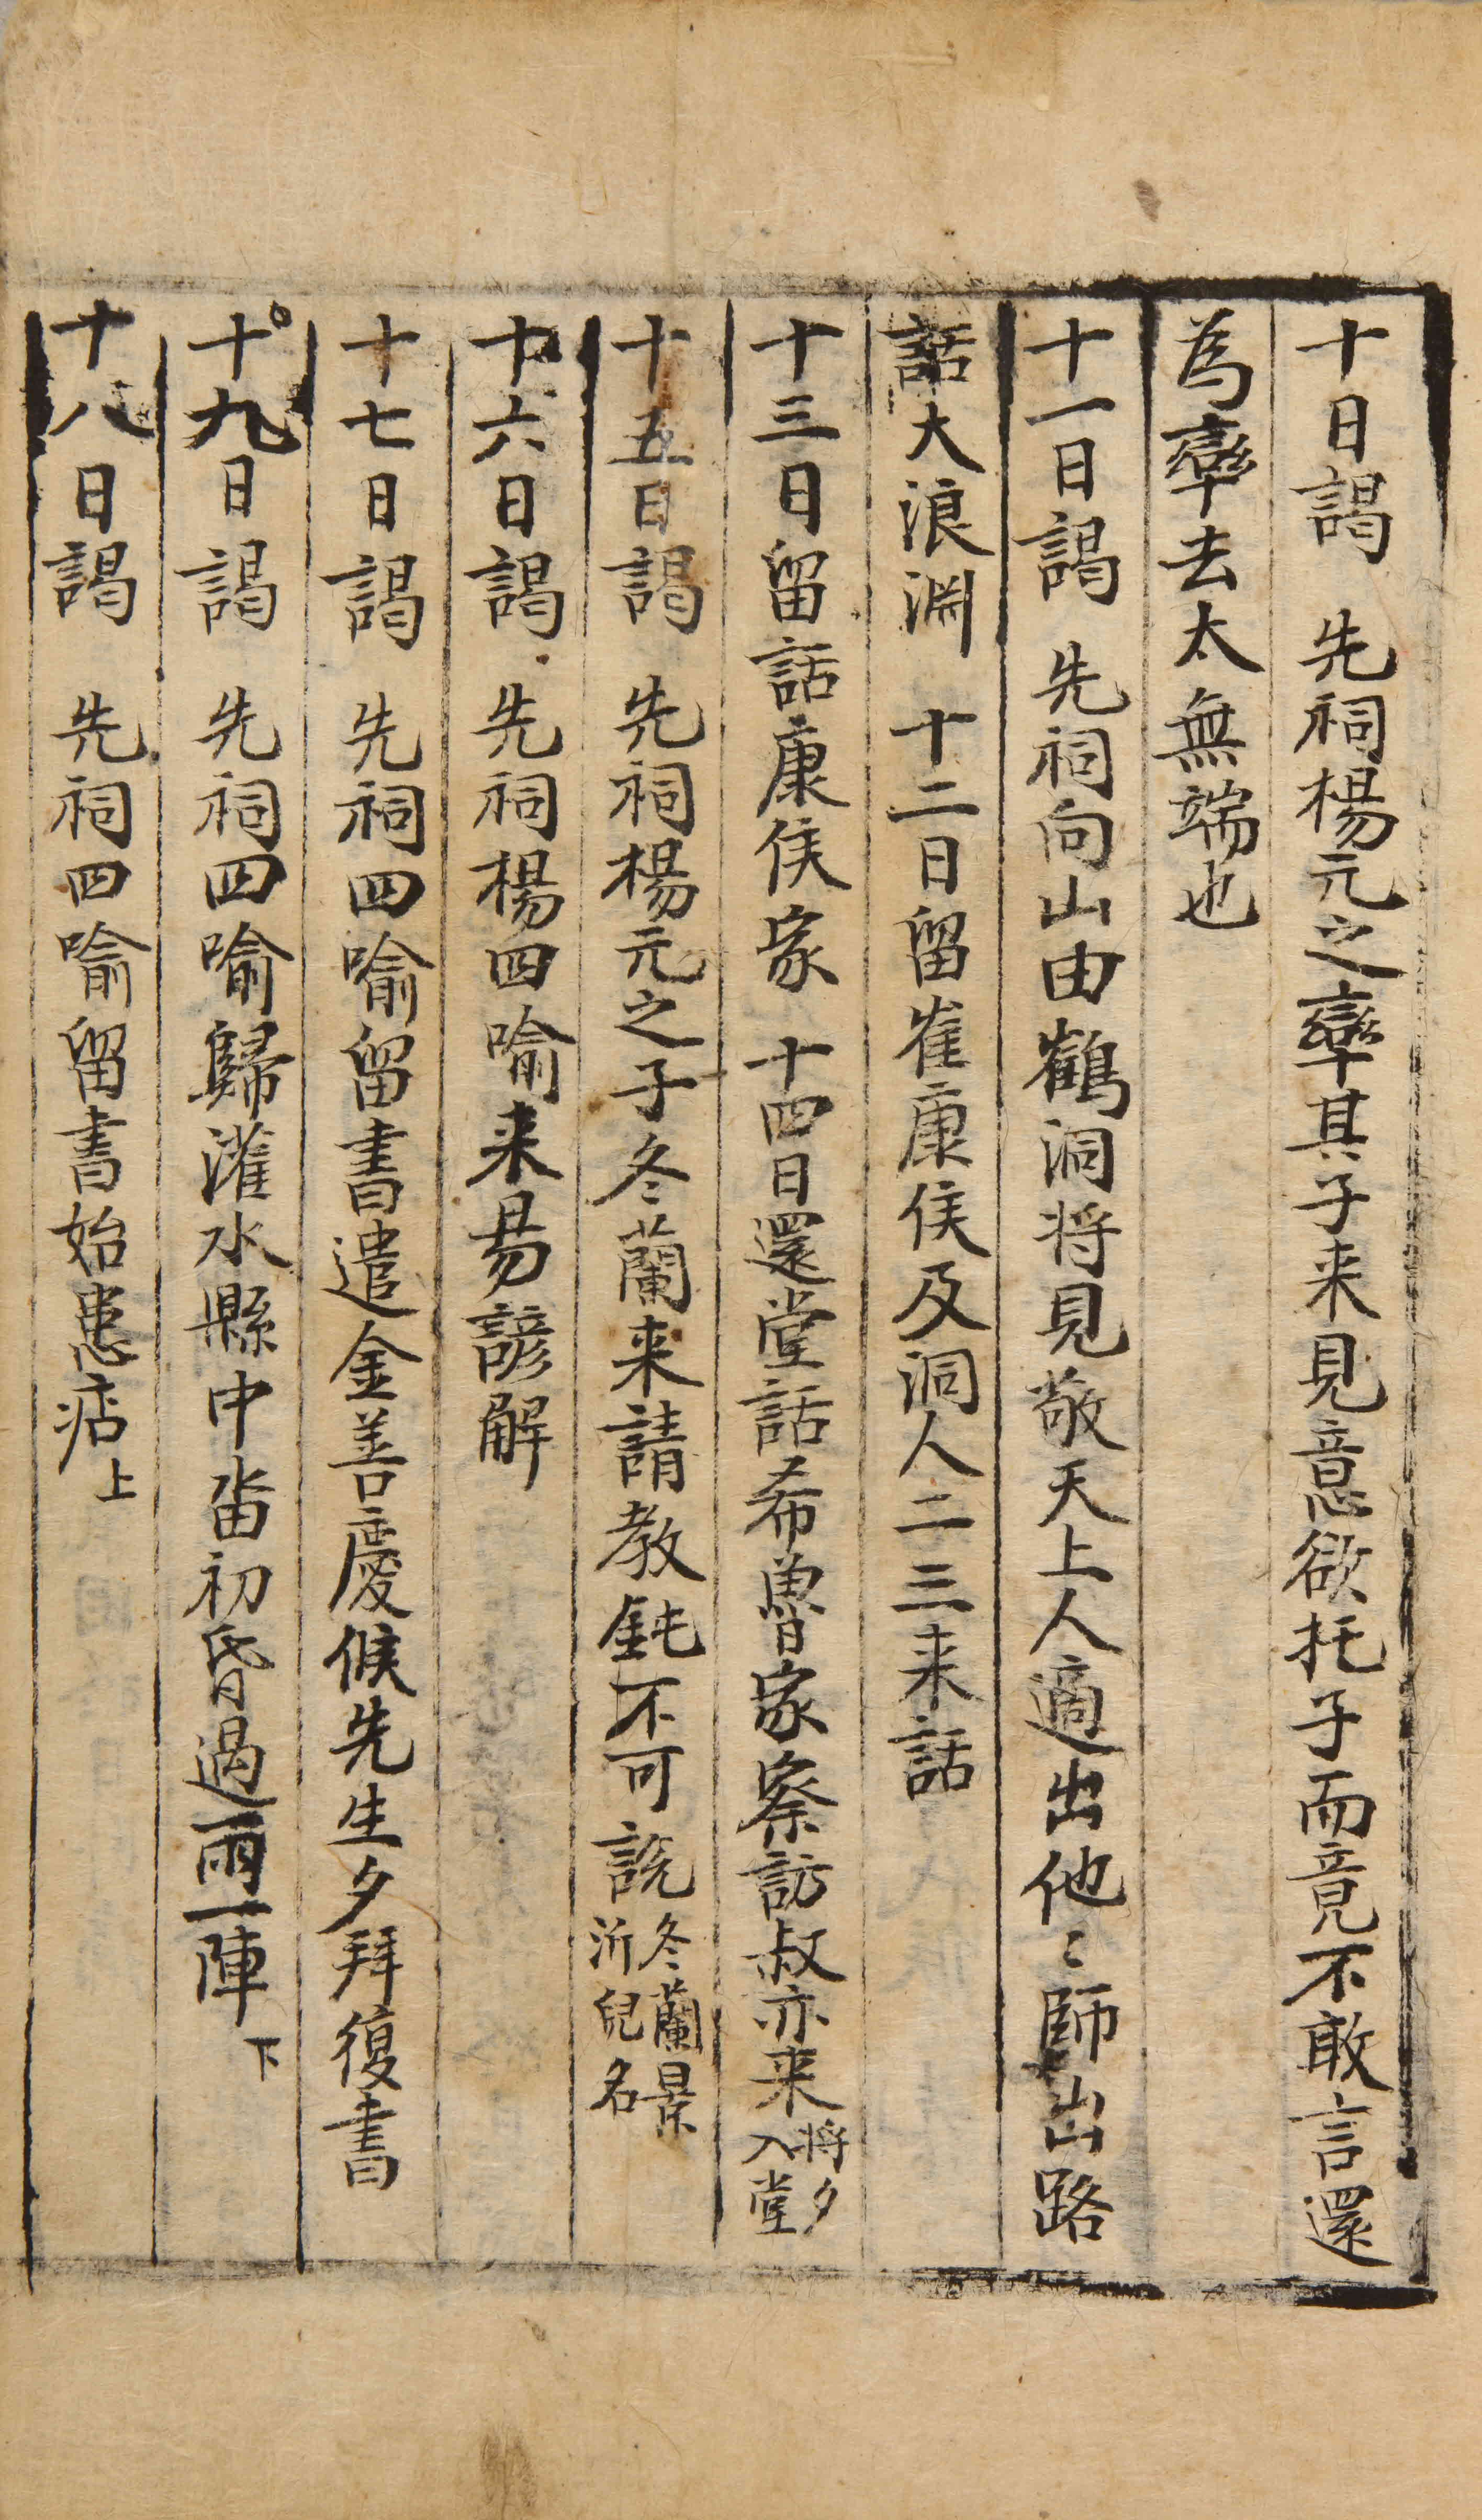 十日謁　先祠楊元之孿其子来見意欲托子而竟不敢言還
為孿去太無端也
十一日謁　先祠向山由鶴洞将見敬天上人適出他〻師出路
話大浪淵　十二日留崔康侯及洞人二三来話
十三日留話康侯家　十四日還堂話希魯家察訪叔亦来将夕入堂
十五日謁　先祠楊元之子冬蘭来請教鈍不可說冬蘭景沂兒名
十六日謁　先祠楊四喻来易諺解
十七日謁　先祠四喻留書遣金善慶候先生夕拜復書
十九日謁　先祠四喻歸灌水縣中畓初昏過雨一陣下
十八日謁　先祠四喻留書始患痁上